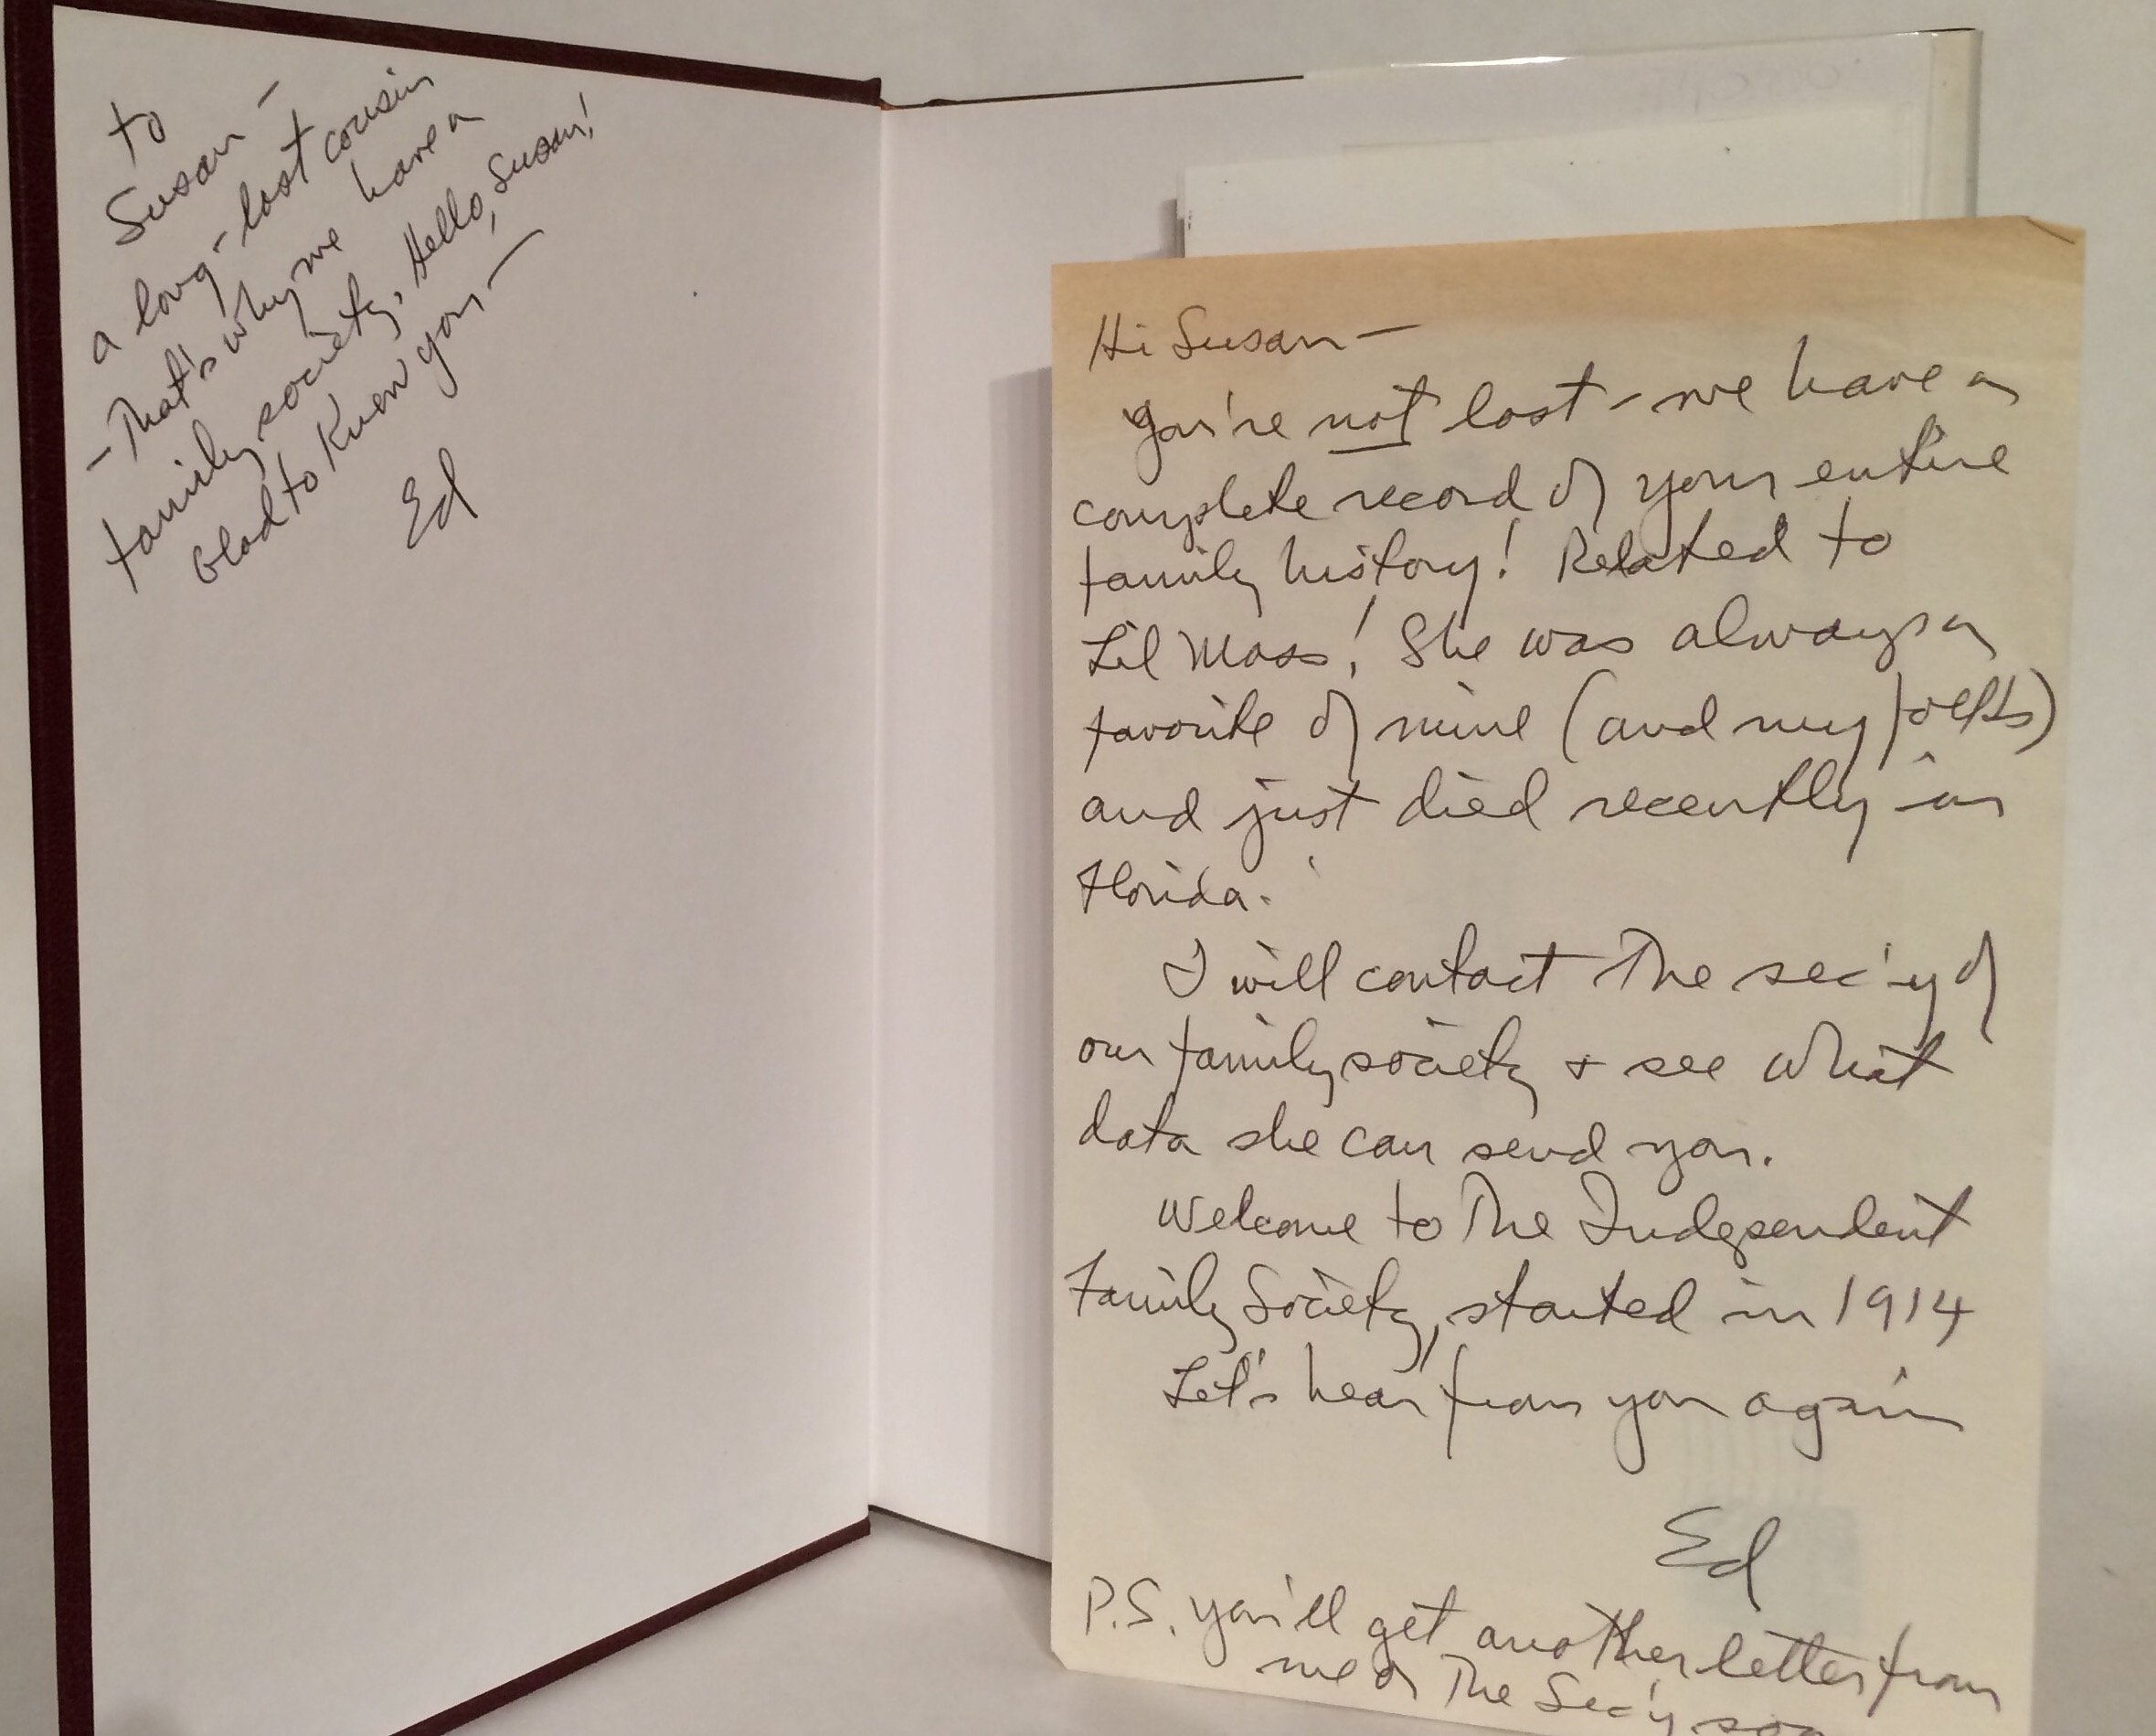 to
Susan —
a long-lost cousin
- That's why we have a
family society. Hello, Susan!
Glad to know you —
Ed
Hi Susan —
You're not lost - we have a
complete record of your entire
family history! Related to
Lil Moss! She was always a
favorite of mine (and my folks)
and just died recently in
Florida.
I will contact the sec'y of
our family society + see what
data she can send you.
Welcome to The Independent
Family Society, started in 1914
Let's hear from you again
Ed
P.S. You'll get another letter from
me or The Sec'y soon